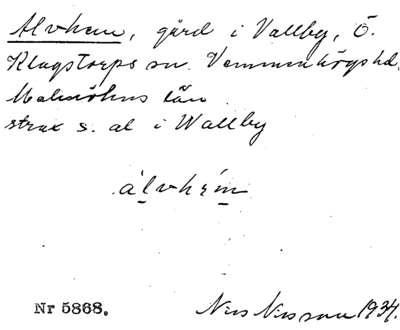 Alvhem, gård i Vallby, Ö.
Klagstorps sn. Vemmenhögs hd.
Malmöhus län.
strax s. al i Wallby
álvhém
Nr 5868.
Nils Nilsson 1934.